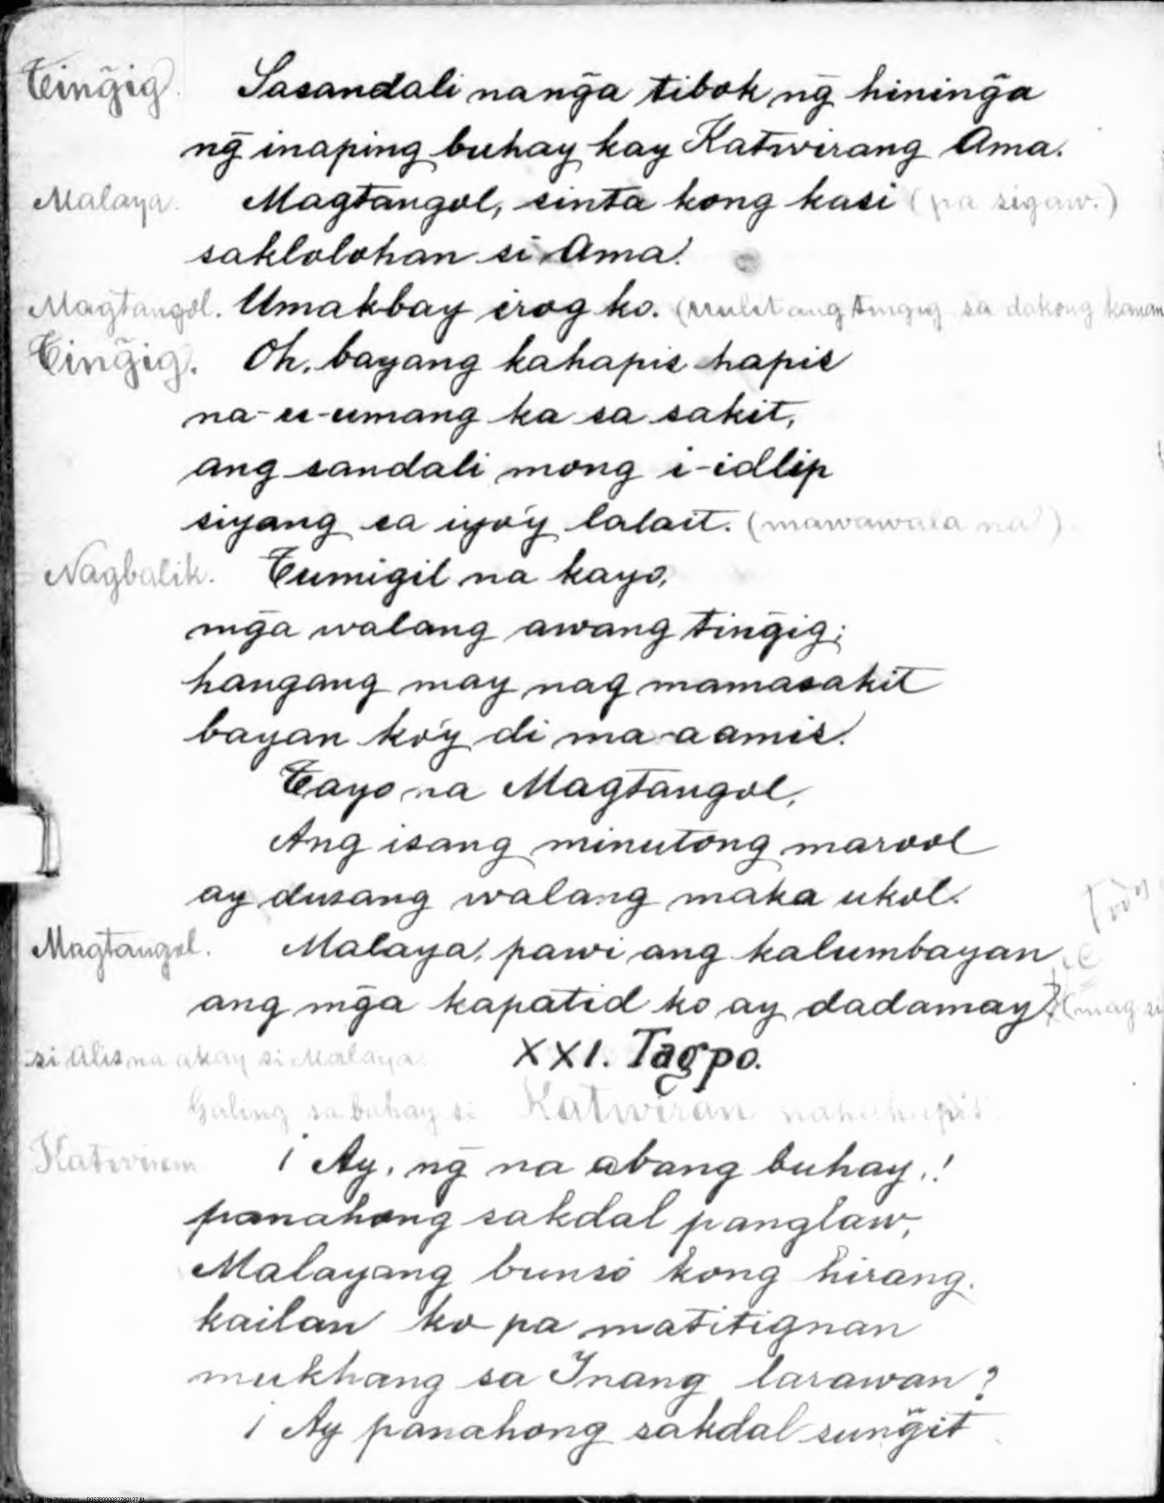 Ting̃ig. Sasandali nang̃a tibok ng̃ hining̃a
ng̃ inaping buhay kay Katwirang Ama.
Malaya. Magtangol, sinta kong kasi (pa sigaw.)
saklolohan si Ama!
Magtangol. Umakbay irog ko. (uulit ang tingig sa dakong kanan
Ting̃ig. Oh, bayang kahapis hapis
na-u-umang ka sa sakit,
ang sandali mong i-idlip
siyang sa iyo'y lalait. (mawawala na)
Nagbalik. Tumigil na kayo,
mg̃a walang awang ting̃ig;
hangang may nag mamasakit
bayan ko'y di ma-aamis.
Tayo na Magtangol,
Ang isang minutong marool
ay dusang walang maka ukol.
Magtangol. Malaya, pawi ang kalumbayan
ang mg̃a kapatid ko ay dadamay (mag si
si alis na akay si Malaya.
XXI. Tagpo.
Galing sa buhay si Katwiran nahahapis
Katwiran ¡Ay, ng̃ na abang buhay,!
panahong sakdal panglaw,
Malayang bunso kong hirang.
kailan ko pa matitignan
mukhang sa Inang larawan?
¡Ay panahong sakdal sung̃it